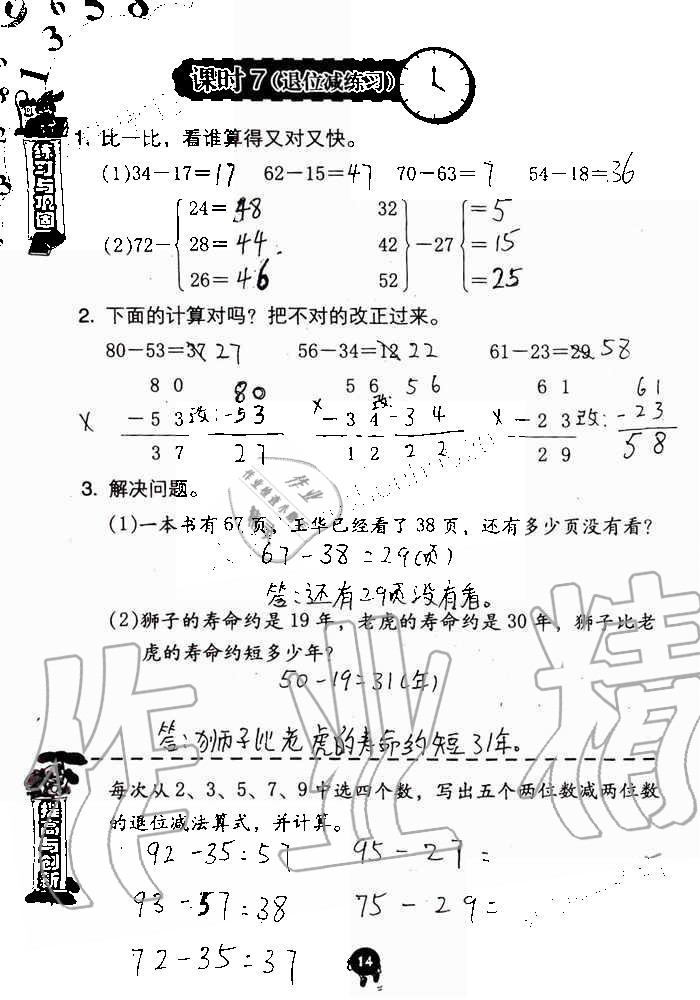 9 6 5 8
3
1
课时7(退位减练习)
练习与巩固
1. 比一比，看谁算得又对又快。
(1)34－17＝17 62－15＝47 70－63＝7 54－18＝36
24＝38 32 ＝5
(2)72－ 28＝44 42 －27 ＝15
26＝46 52 ＝25
2. 下面的计算对吗？把不对的改正过来。
80－53＝37 27 56－34＝12 22 61－23＝29 58
8 0 80 5 6 5 6 6 1 61
× －5 3 改: -53 × －3 4 改: -3 4 × －2 3 改: -23
3 7 27 1 2 2 2 2 9 58
3. 解决问题。
(1)一本书有67页，王华已经看了38页，还有多少页没有看？
67-38=29(页)
答:还有29页没有看。
(2)狮子的寿命约是19年，老虎的寿命约是30年，狮子比老
虎的寿命约短多少年？
50-19=31(年)
答:狮子比老虎的寿命约短31年。
提高与创新
每次从2、3、5、7、9中选四个数，写出五个两位数减两位数
的退位减法算式，并计算。
92-35=57 95-27=
93-57=38 75-29=
72-35=37
14
作业精
作业
作业检查小助手